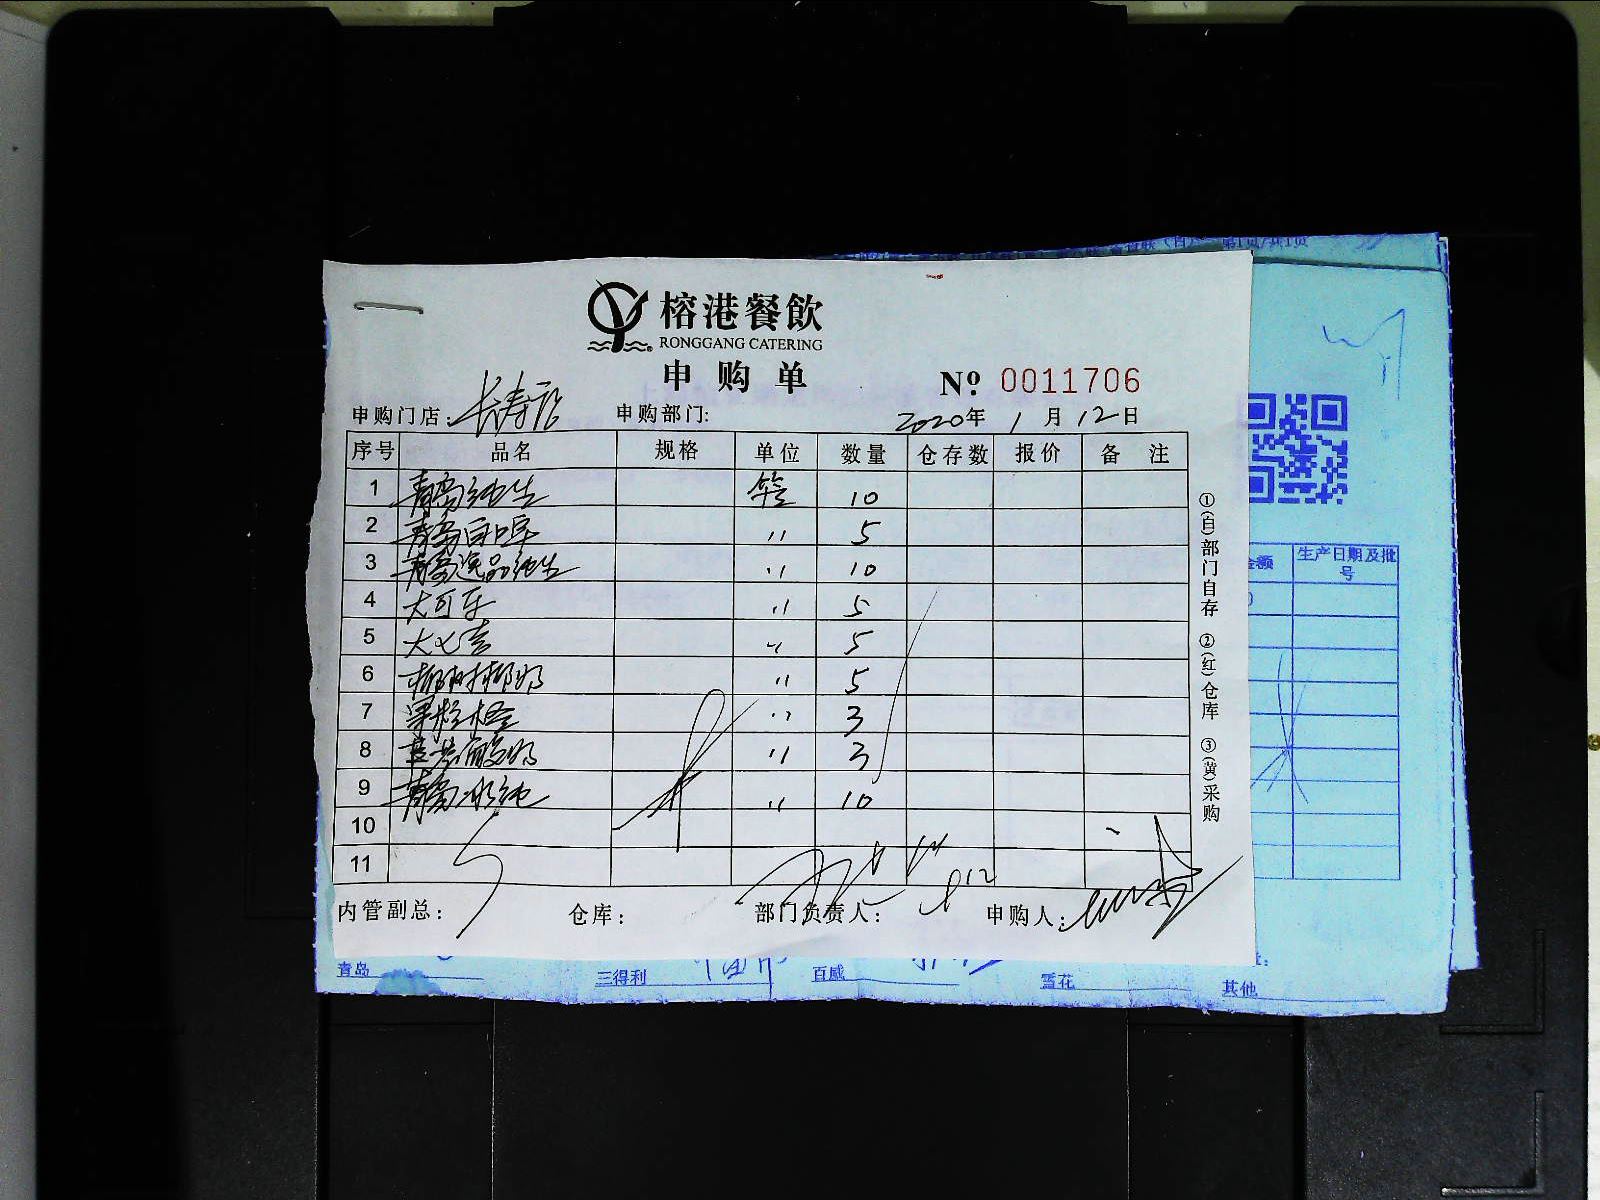 榕港餐飲
RONGGANG CATERING
申购单
№ 0011706
申购门店: 长寿店 申购部门: 2020年1月12日
序号 品名 规格 单位 数量 仓存数 报价 备注
1 青岛纯生 10
2 青岛白啤 〃 5
3 青岛逸品纯生 〃 10
4 大可乐 〃 5
5 大七喜 〃 5
6 椰树椰奶 〃 5
7 果粒橙 〃 3
8 酸奶 〃 3
9 青岛冰纯 〃 10
10
11
内管副总: 仓库: 部门负责人: 申购人:
①(白)部门自存 ②(红)仓库 ③(黄)采购
第1页/共1页
金额 生产日期及批号
青岛 三得利 百威 雪花 其他